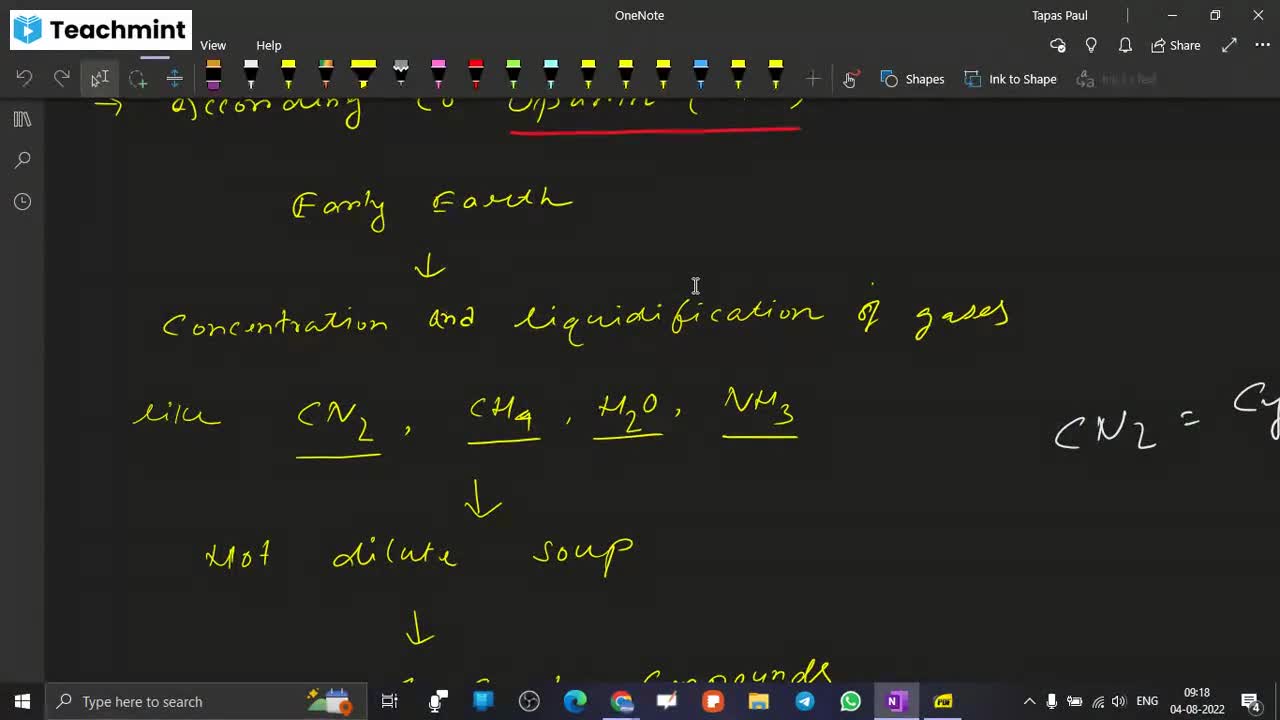 Teachmint
OneNote
Tapas Paul
View Help
Share
Shapes
Ink to Shape
→ According to
Early Earth
↓
Concentration and liquidification of gases
like CN2, CH4, H2O, NH3
CN2 = Cy
↓
Hot dilute soup
↓
Compounds
Type here to search
ENG
09:18
04-08-2022
4